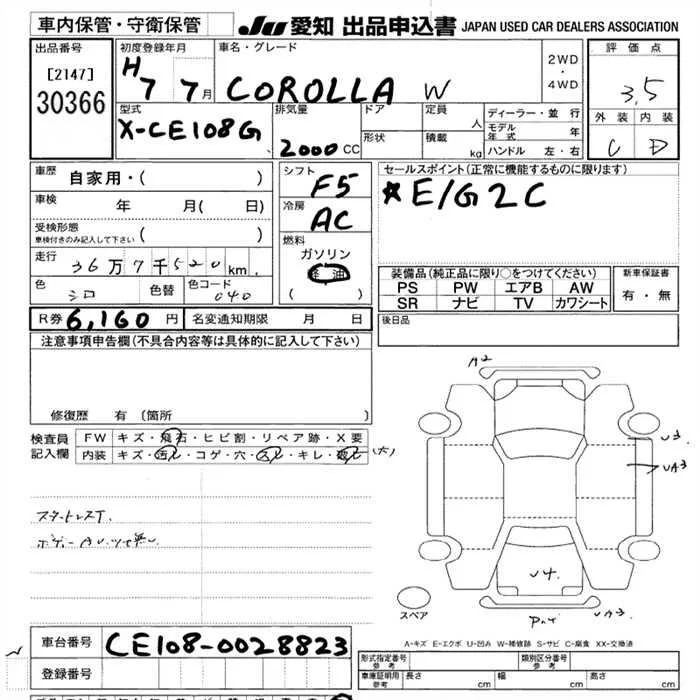 車内保管・守衛保管
JU 愛知 出品申込書 JAPAN USED CAR DEALERS ASSOCIATION
出品番号
[2147]
30366
初度登録年月
H 7 7月
車名・グレード
COROLLA W
2WD
・
4WD
評価点
3.5
外装 内装
C D
型式
X-CE108G
排気量
2000 CC
ドア
形状
定員
人
積載
kg
ディーラー・並行
モデル年式 年
ハンドル 左・右
車歴 自家用・( )
車検 年 月( 日)
受検形態
車検付きのみ記入して下さい ( )
走行 36万7千520km.
色 シロ 色替 色コード 040
シフト
F5
冷房
AC
燃料
ガソリン
軽油
( )
セールスポイント(正常に機能するものに限ります)
*E/G2C
装備品(純正品に限り○をつけてください)
PS PW エアB AW
SR ナビ TV カワシート
新車保証書
有・無
R券 6,160 円 名変通知期限 月 日
後日品
注意事項申告欄(不具合内容等は具体的に記入して下さい)
修復歴 有 (箇所 )
検査員記入欄
FW キズ・飛石・ヒビ割・リペア跡・X要
内装 キズ・汚レ・コゲ・穴・スレ・キレ・破レ (大)
A2
U3
UA3
U4
UA3
スペア
A-キズ E-エクボ U-凹み W-補修跡 S-サビ C-腐食 XX-交換済
車台番号 CE108-0028823
登録番号
形式指定番号
参考
類別区分番号
参考
車庫証明用
参考
長さ cm 幅 cm 高さ cm